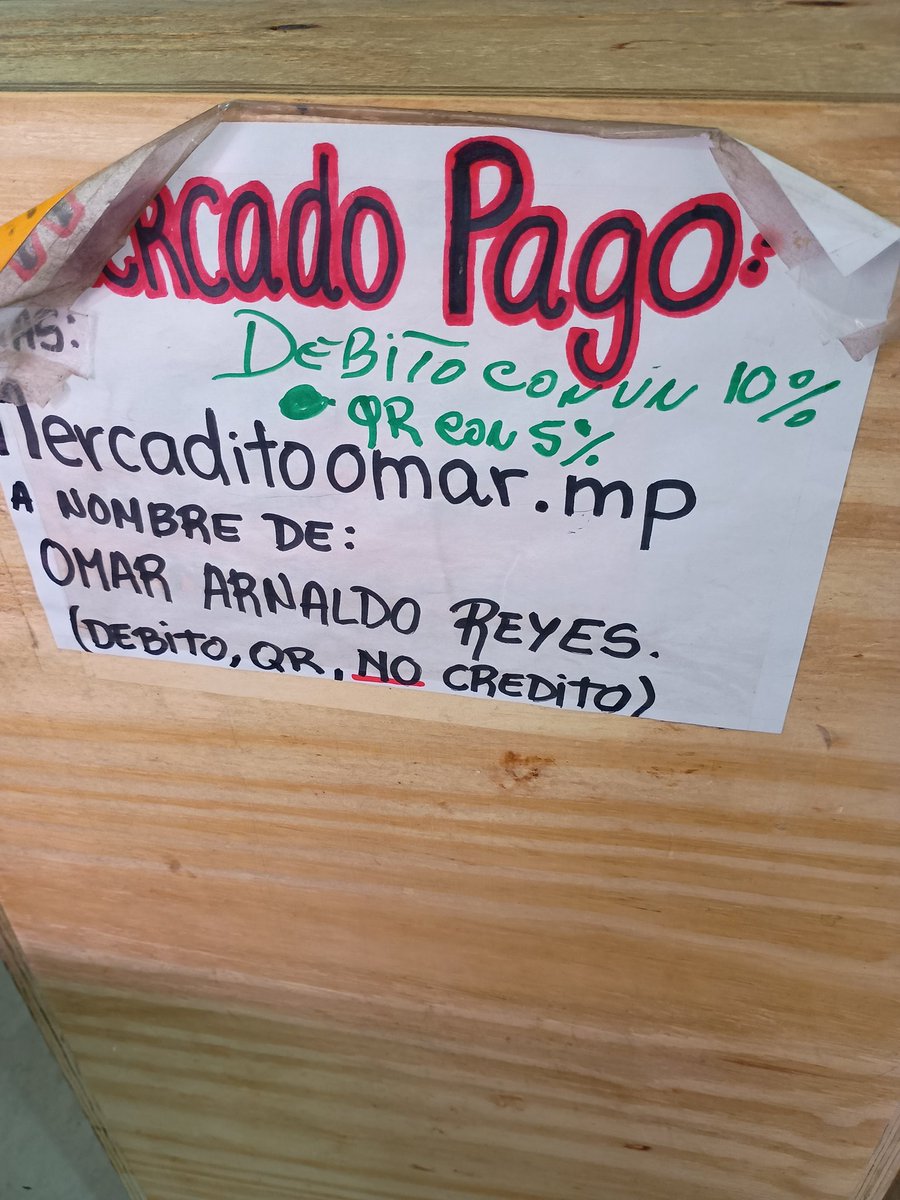 Mercado Pago:
AS:
DEBITO CON UN 10%
QR CON 5%
Mercaditoomar.mp
A NOMBRE DE:
OMAR ARNALDO REYES.
(DEBITO, QR, NO CREDITO)